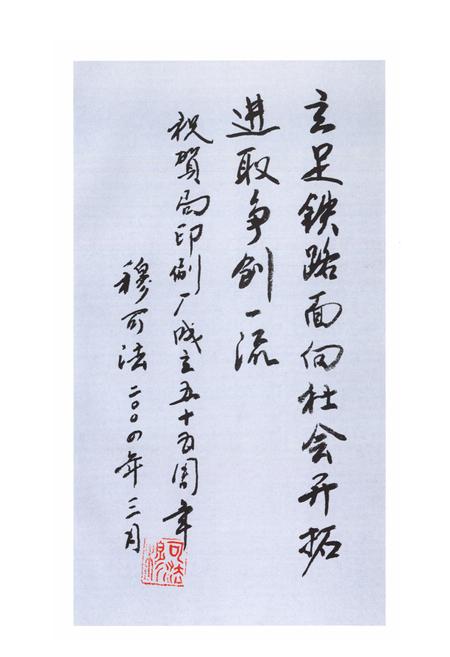 立足铁路面向社会开拓
进取争创一流
祝贺局印刷厂成立五十五周年
穆可法二〇〇四年三月